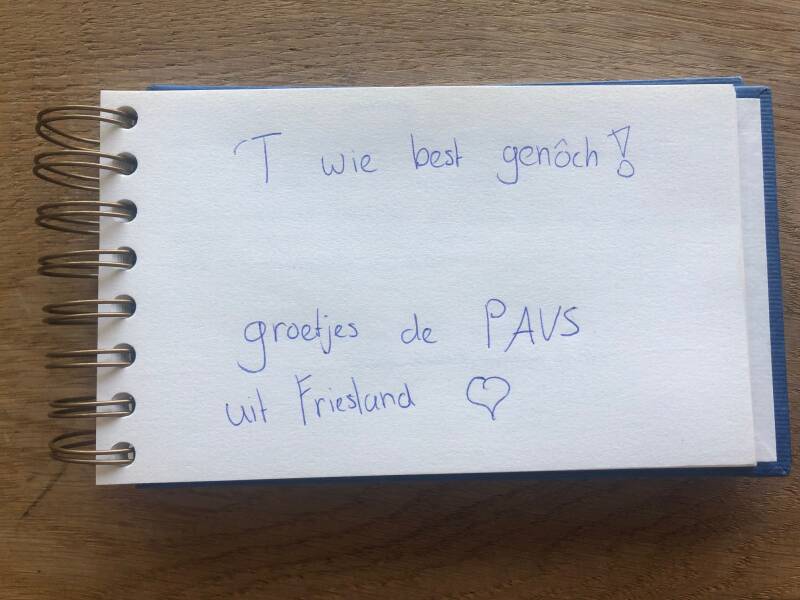 'T wie best genôch!
groetjes de PAVS
uit Friesland ♡